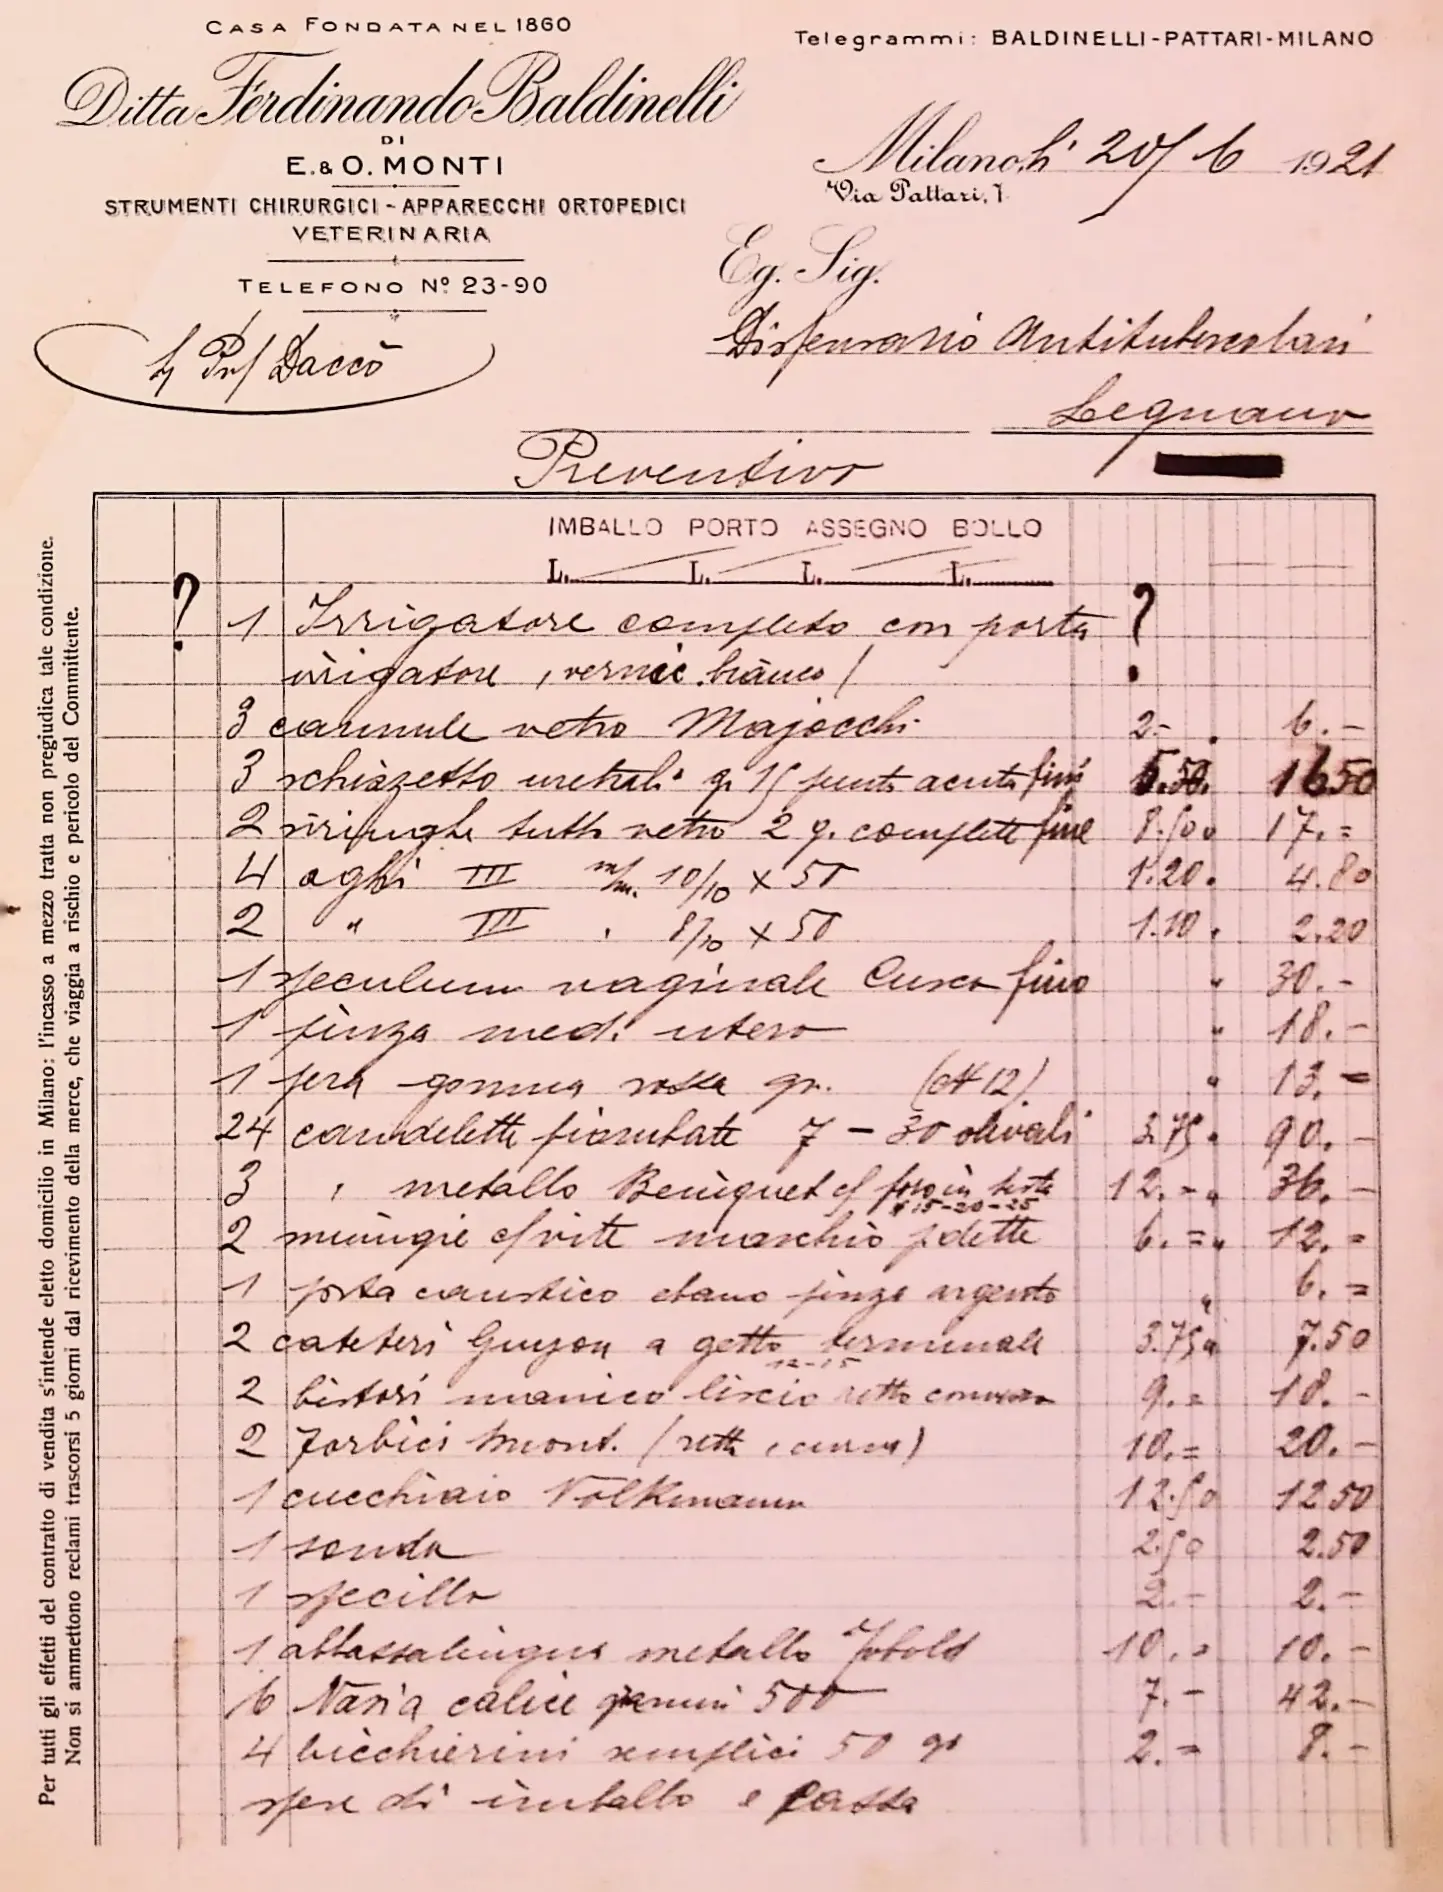 CASA FONDATA NEL 1860
Telegrammi: BALDINELLI-PATTARI-MILANO
Ditta Ferdinando Baldinelli
DI
E. & O. MONTI
STRUMENTI CHIRURGICI - APPARECCHI ORTOPEDICI
VETERINARIA
TELEFONO Nº 23-90
Milano, li 20/6 1921
Via Pattari, 7
Eg. Sig.
Prf Daccò
Dispensario Antitubercolari
Legnano
Preventivo
IMBALLO PORTO ASSEGNO BOLLO
L. L. L. L.
? 1 Irrigatore completo con porta ?
irrigatore, vernic. bianco
3 cannule vetro Majocchi 2.- 6.-
3 schizzetto uretrali gr 15 punta acuta fini 5.50 16 50
2 siringhe tutto vetro 2 g. complete fine 8.50 17.=
4 aghi III m/m. 10/10 x 50 1.20 4.80
2 " III 8/10 x 50 1.10 2.20
1 speculum vaginale Cusco fino " 30.-
1 pinza med. utero " 18.-
1 pera gomma rossa gr. (N 12) " 13.-
24 candelette piombate 7 - 30 olivali 3.75 90.-
3 metallo Beniquet c/ foro in testa 12.- 36.-
15-20-25
2 c/vite maschio p dette 6.= 12.=
1 porta caustico ebano pinza argento " 6.=
2 cateteri Guyon a getto terminale 3.75 7.50
12-15
2 bistori manico liscio retto convesso 9.= 18.-
2 Forbici smont. (retta, curva) 10.= 20.-
1 cucchiaio Volkmann 12.50 12 50
1 sonda 2.50 2.50
1 specillo 2.- 2.-
1 abbassalingua metallo Jobold 10.= 10.-
6 Vasi a calice 500 7.- 42.-
4 bicchierini semplici 50 gr 2.- 8.-
spese di imballo e
Per tutti gli effetti del contratto di vendita s'intende eletto domicilio in Milano: l'incasso a mezzo tratta non pregiudica tale condizione.
Non si ammettono reclami trascorsi 5 giorni dal ricevimento della merce, che viaggia a rischio e pericolo del Committente.